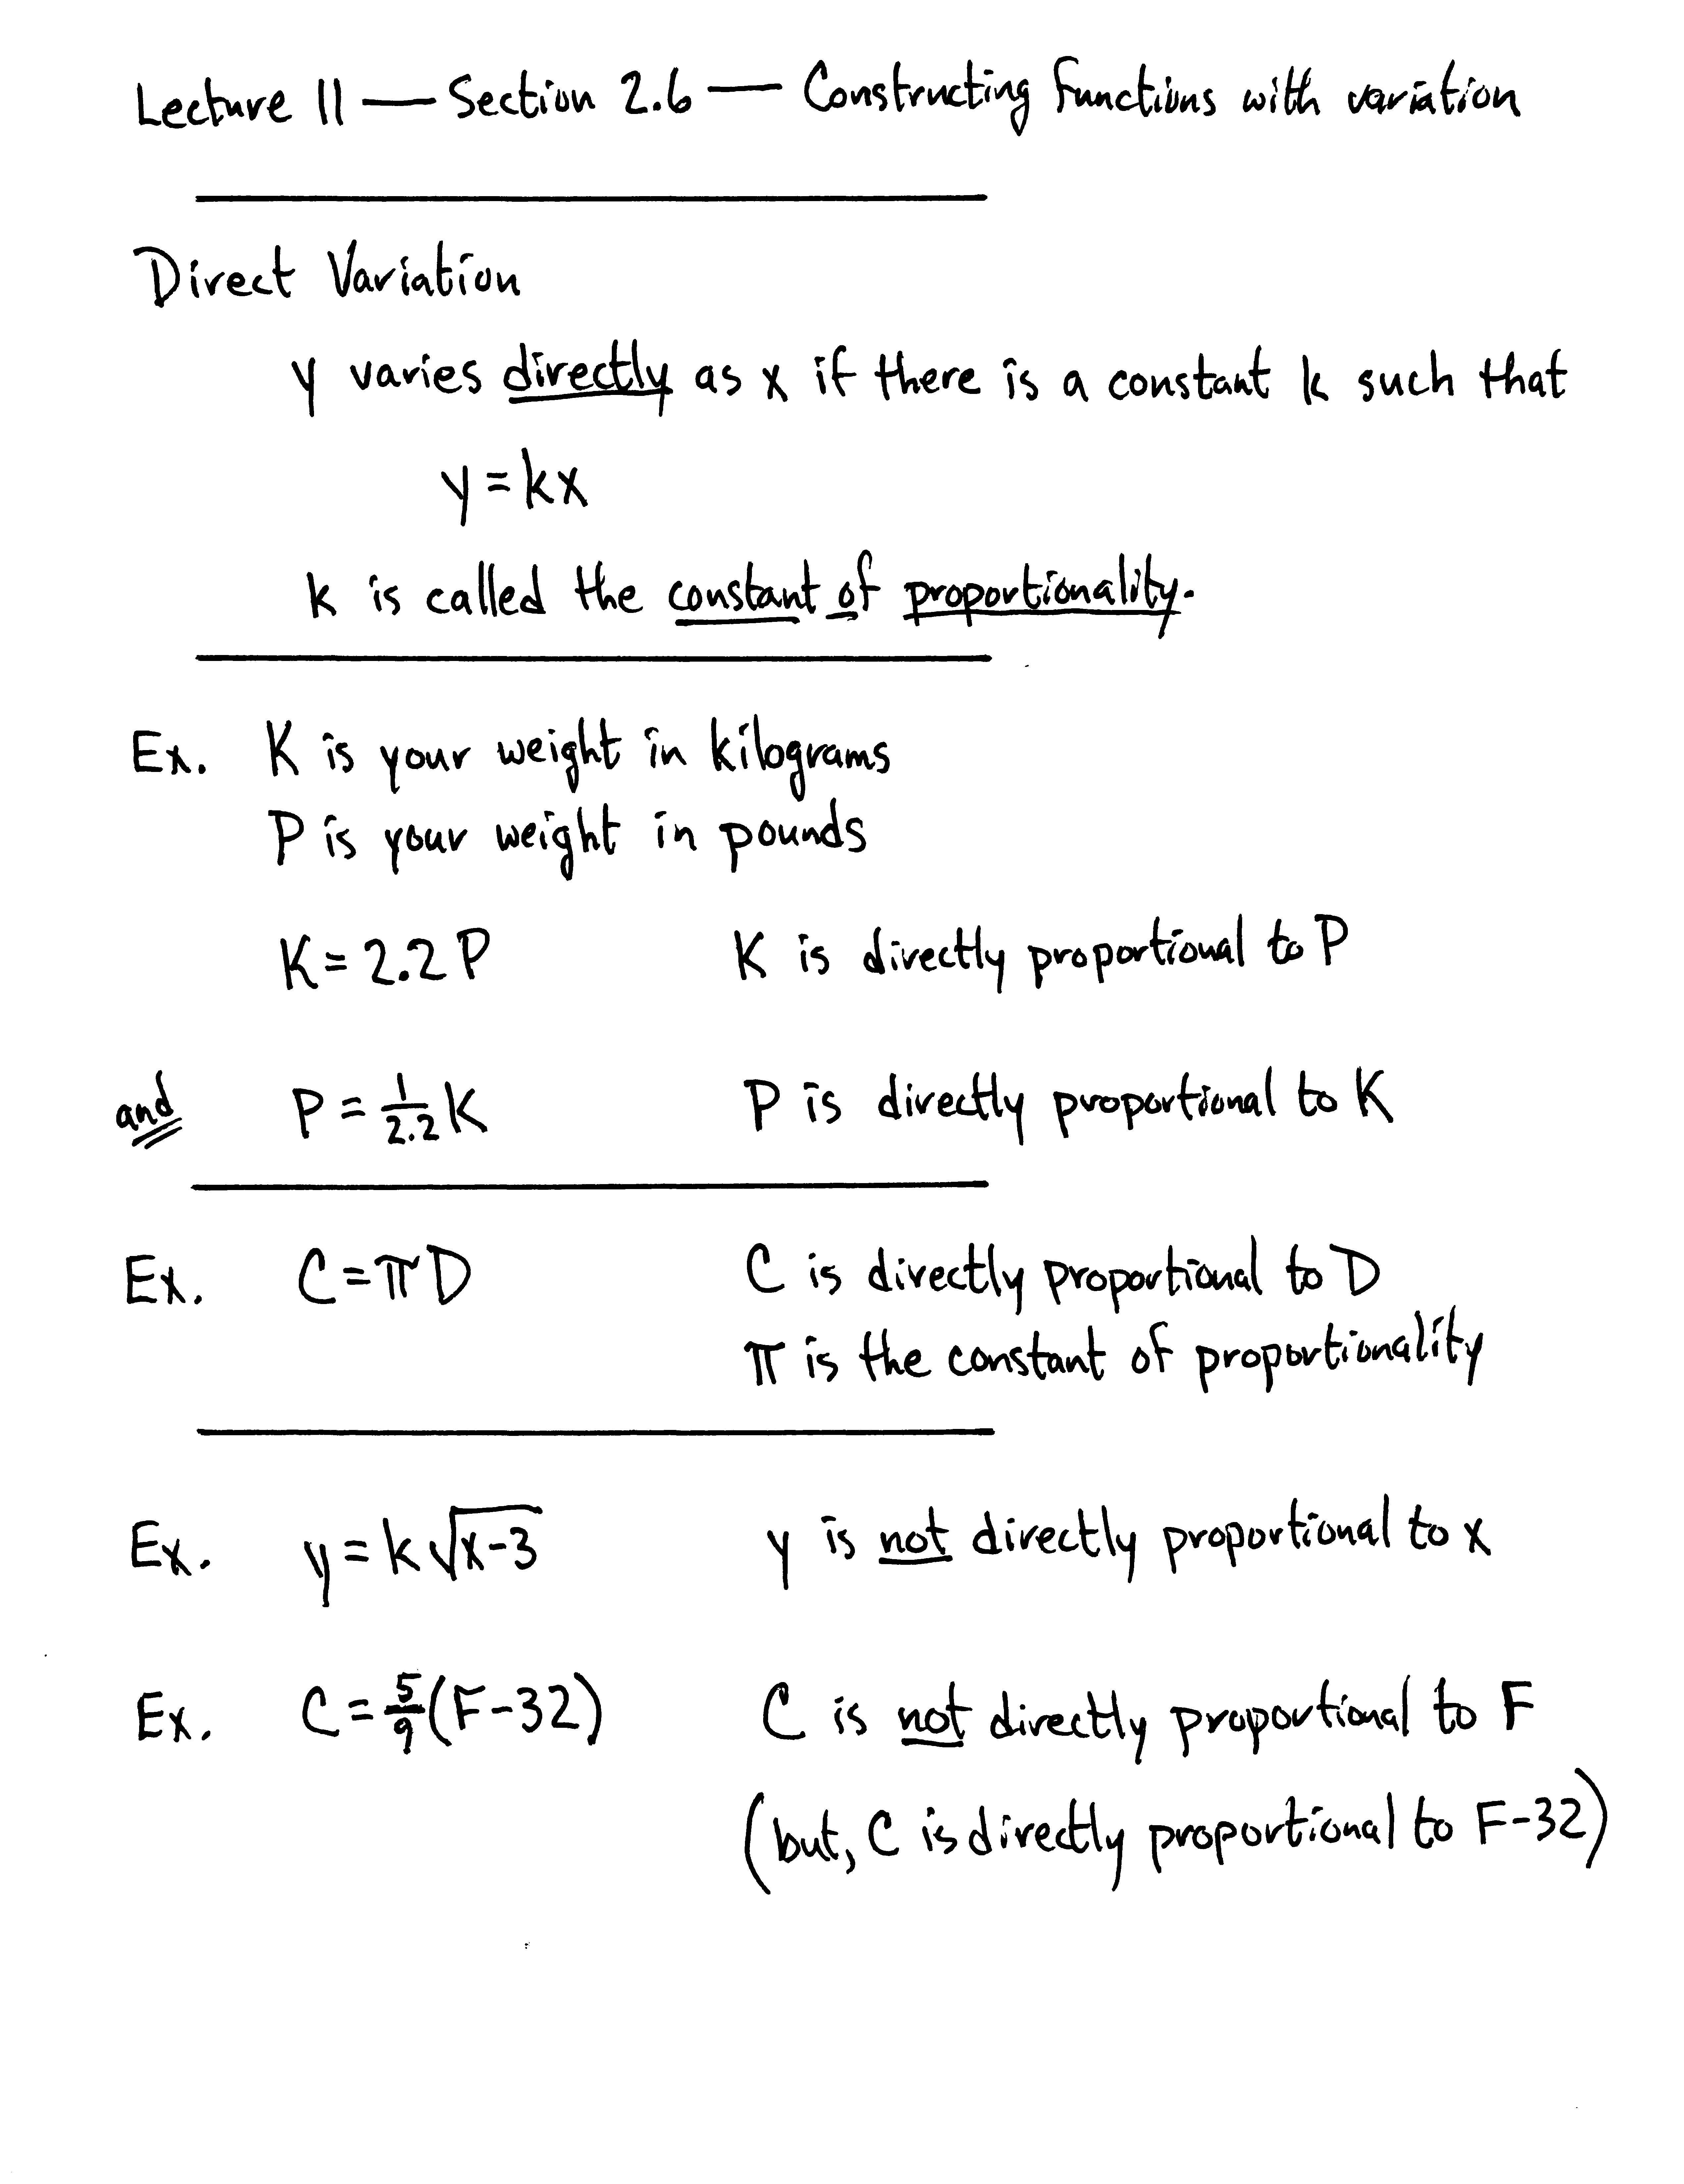 Lecture 11 — Section 2.6 — Constructing Functions with variation
Direct Variation
y varies directly as x if there is a constant k such that
y = kx
k is called the constant of proportionality.
Ex. K is your weight in kilograms
P is your weight in pounds
K = 2.2 P K is directly proportional to P
and P = 1/2.2 K P is directly proportional to K
Ex. C = π D C is directly proportional to D
π is the constant of proportionality
Ex. y = k √(x-3) y is not directly proportional to x
Ex. C = 5/9 (F-32) C is not directly proportional to F
(but, C is directly proportional to F-32)